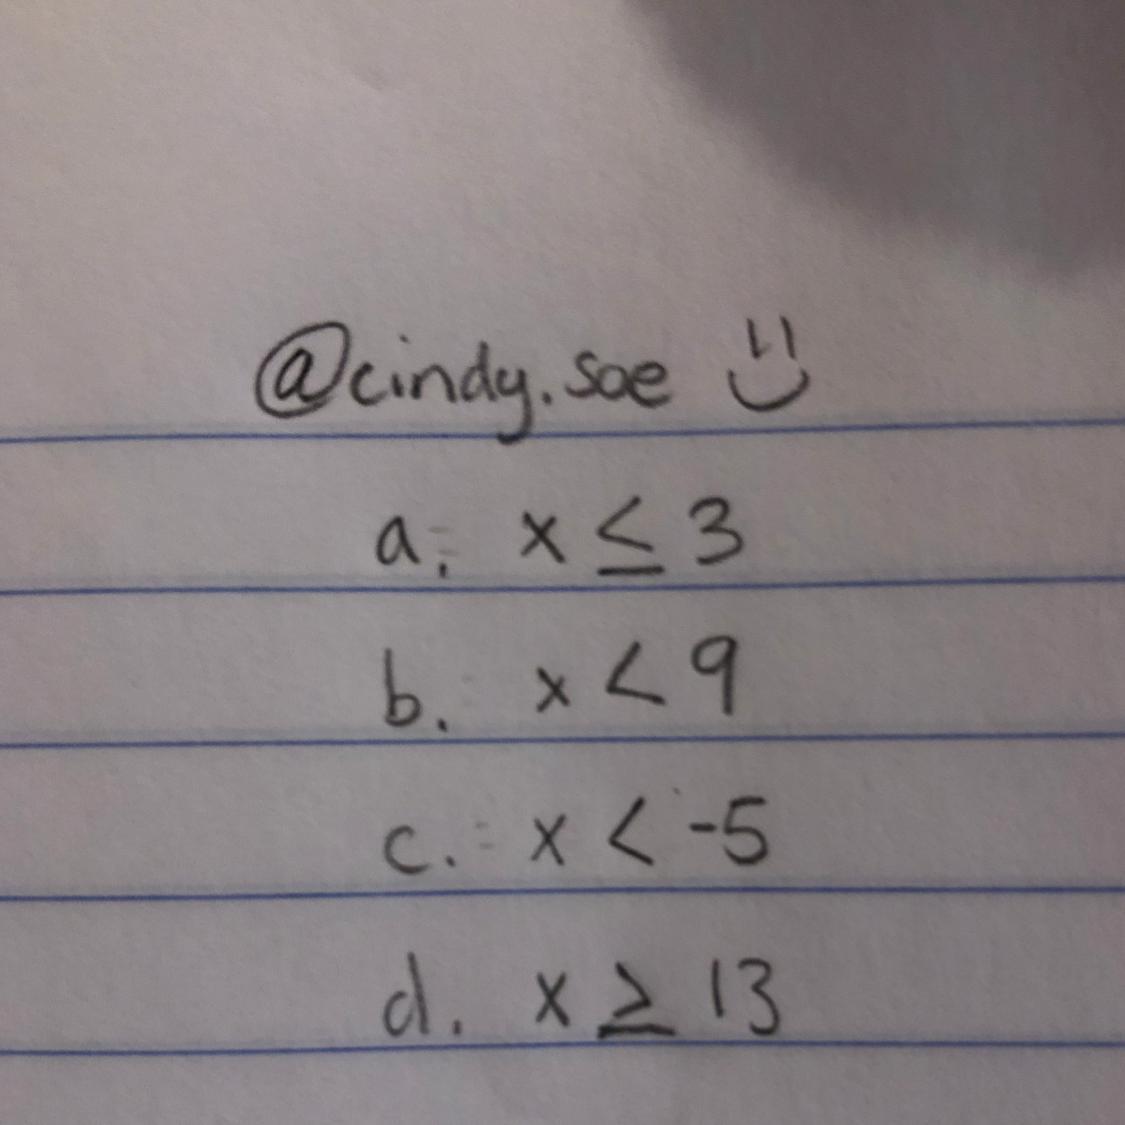 @cindy.soe :)
a. x ≤ 3
b. x < 9
c. x < -5
d. x ≥ 13